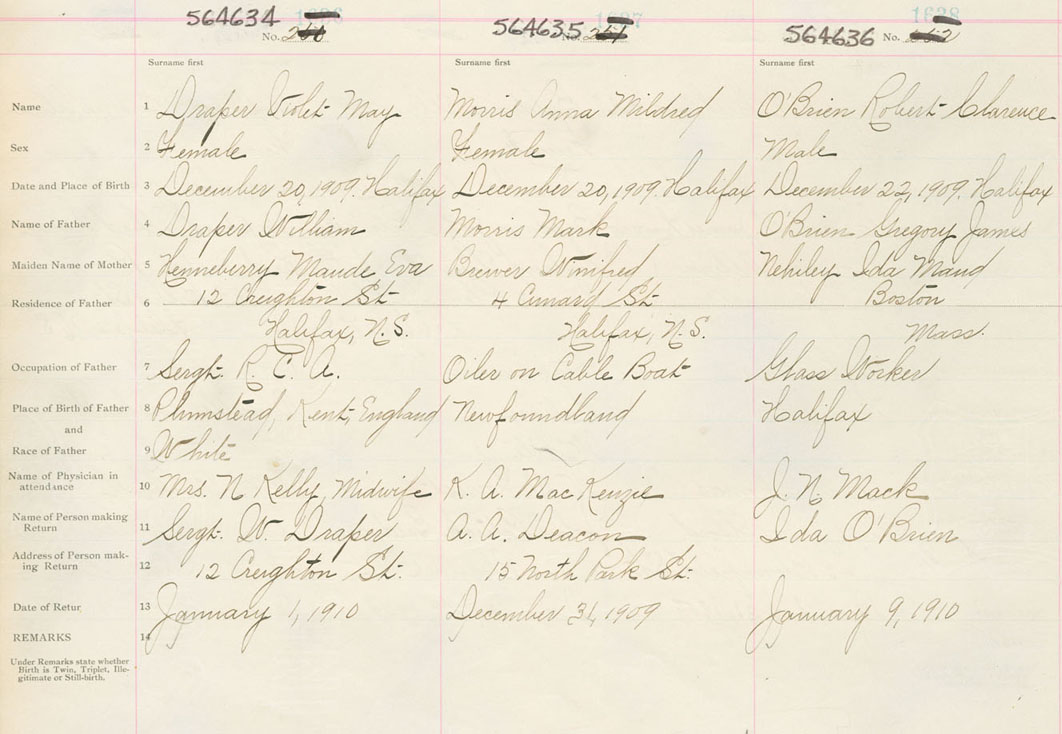 564634 564635 564636
No. No. No.
Surname first Surname first Surname first
Name 1 Draper Violet May Morris Anna Mildred O'Brien Robert Clarence
Sex 2 Female Female Male
Date and Place of Birth 3 December 20, 1909. Halifax December 20, 1909. Halifax December 22, 1909. Halifax
Name of Father 4 Draper William Morris Mark O'Brien Gregory James
Maiden Name of Mother 5 Henneberry Maude Eva Brewer Winifred Nehiley Ida Maud
Residence of Father 6 12 Creighton St. 4 Cunard St. Boston
Halifax, N.S. Halifax, N.S. Mass.
Occupation of Father 7 Sergt. R. C. A. Oiler on Cable Boat Glass Worker
Place of Birth of Father 8 Plumstead, Kent, England Newfoundland Halifax
and
Race of Father 9 White
Name of Physician in
attendance 10 Mrs. N Kelly, Midwife K. A. MacKenzie J. N. Mack
Name of Person making
Return 11 Sergt. W. Draper A. A. Deacon Ida O'Brien
Address of Person mak-
ing Return 12 12 Creighton St. 15 North Park St.
Date of Retur 13 January 1, 1910 December 31, 1909 January 9, 1910
REMARKS 14
Under Remarks state whether
Birth is Twin, Triplet, Ille-
gitimate or Still-birth.